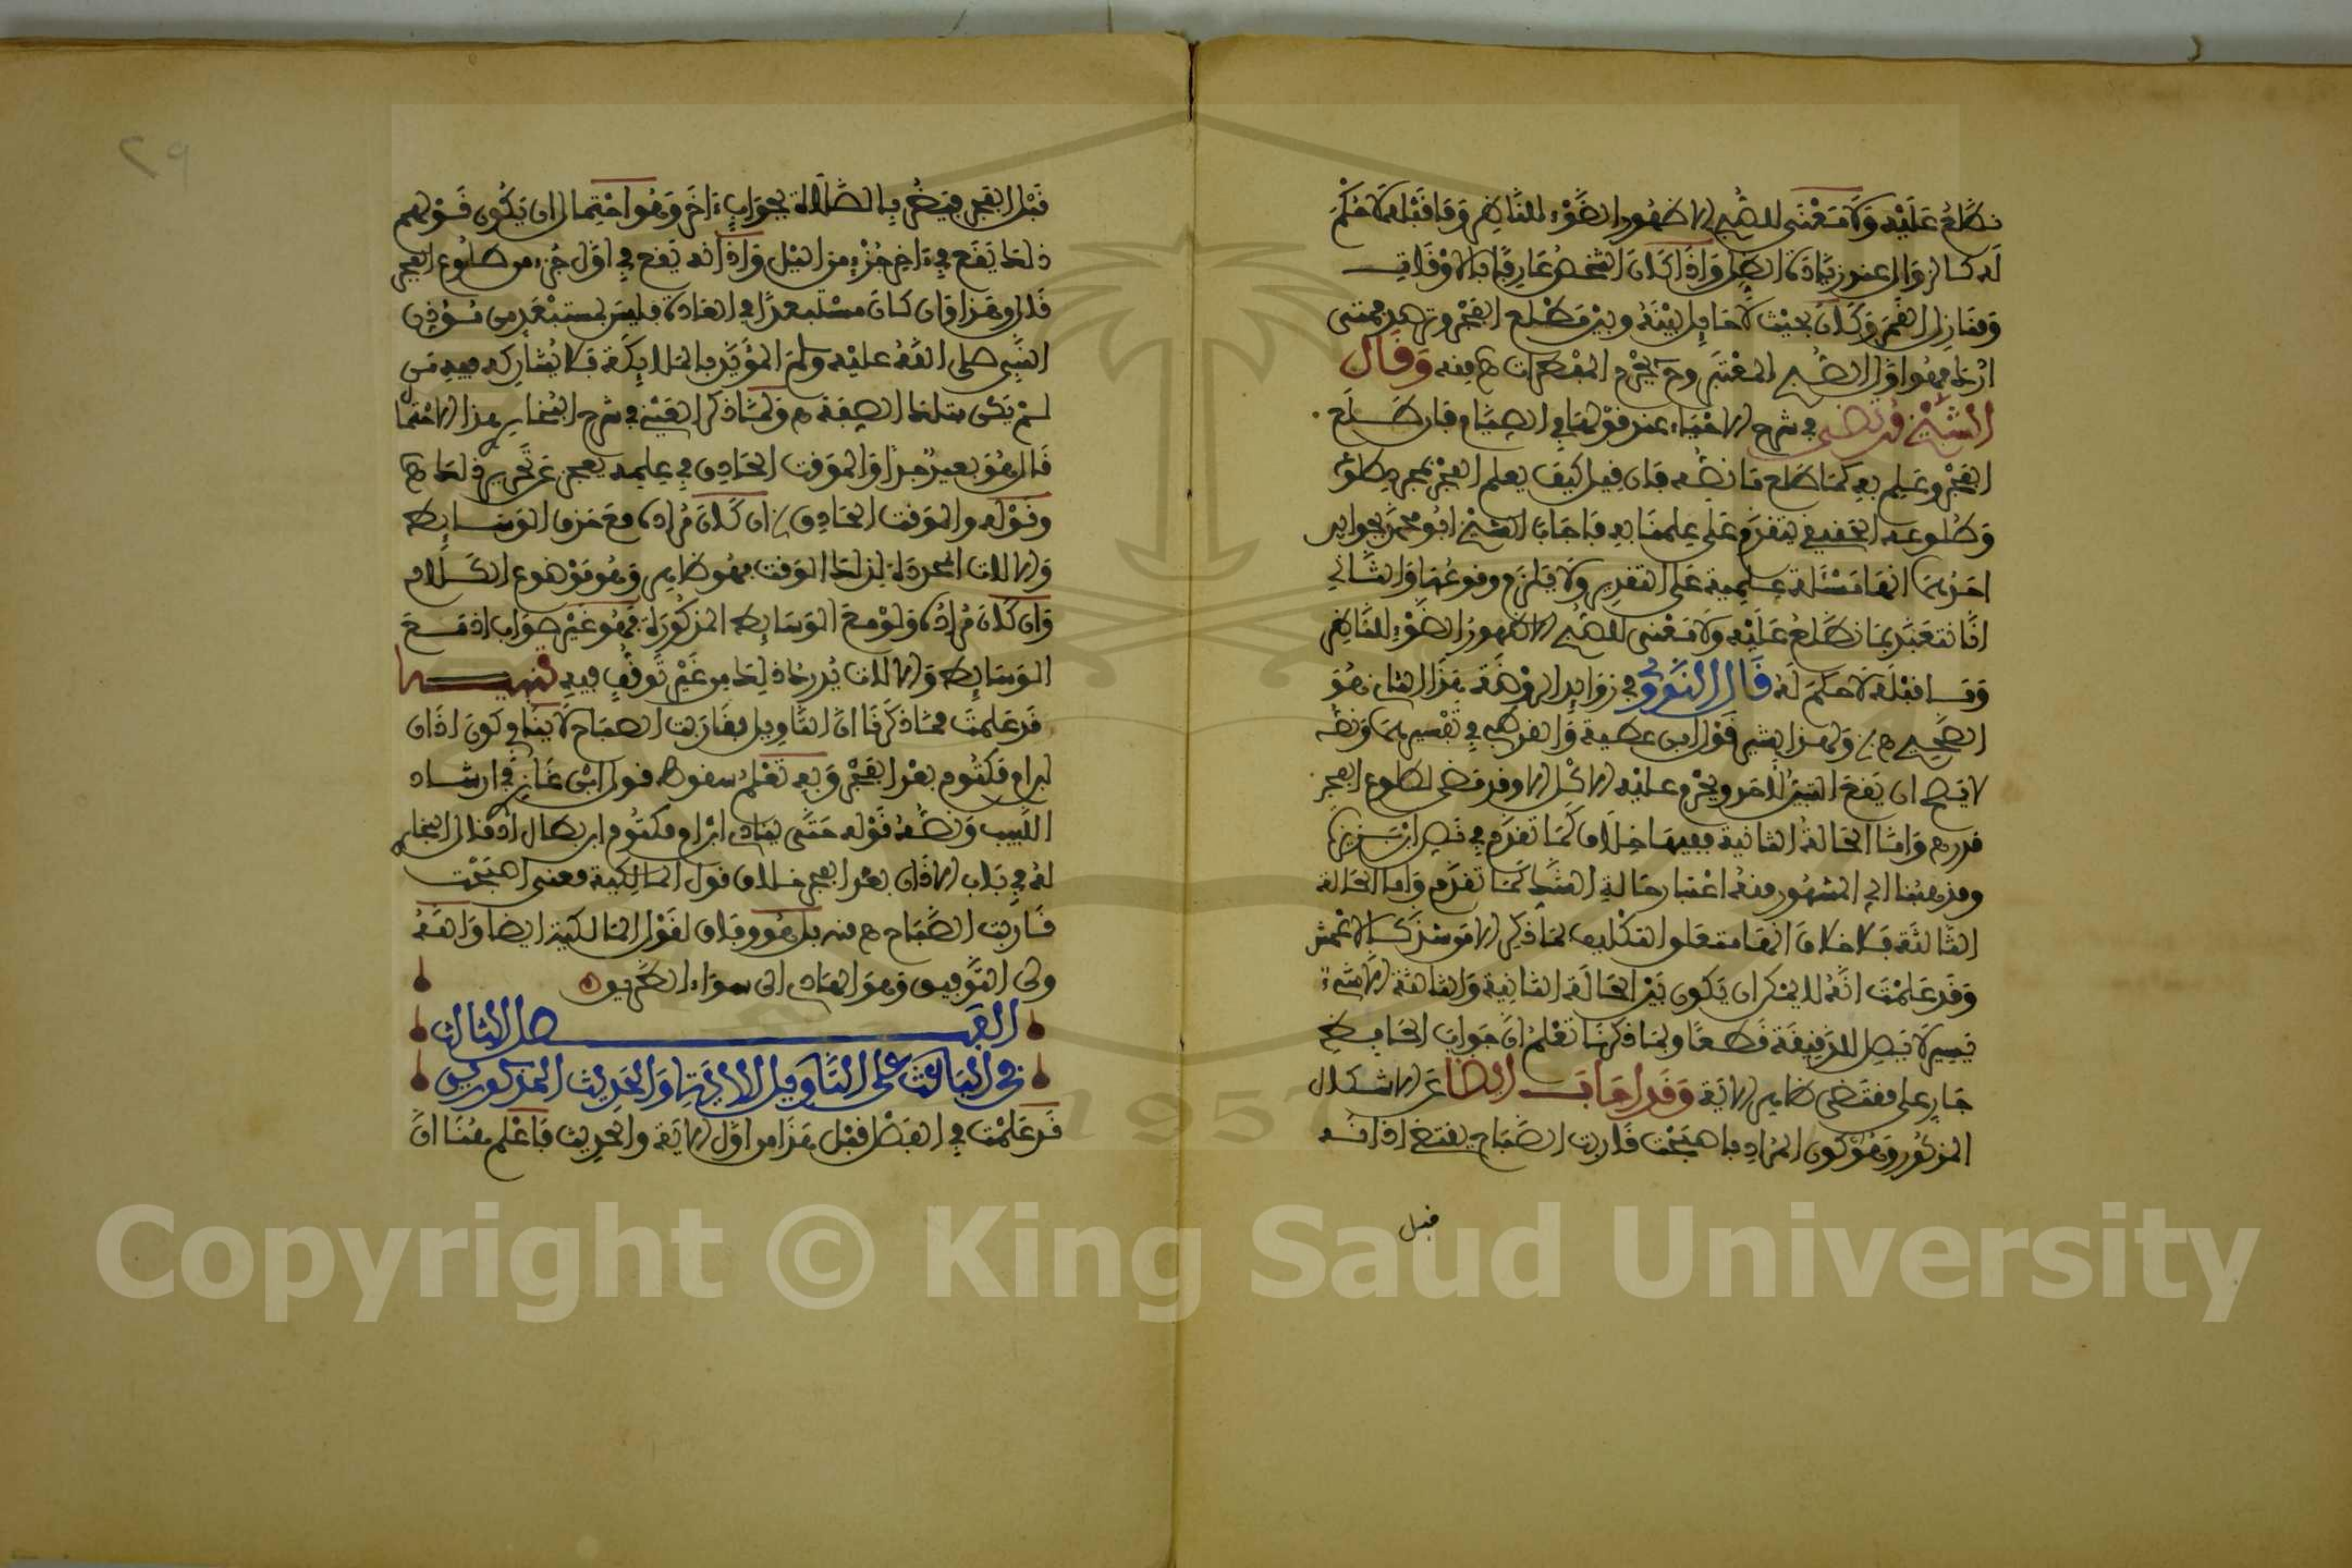 نطلع عليه ولا معنى للصبح الا ظهور الضوء للناظر وما قبله لا حكم
له كالزوال عند زيادة الظل واذا كان الشخص عارفا بالاوقات
ومنازل القمر وكان بحيث لا حايل بينه وبين مطلع الفجر وترصد فمتى
ادرك فهو اول الصبح المعتبر وح يحرم المفطرات ه منه وقال
الشيخ مرتضى في شرح الاحياء عند قولها في الصيام فان طلع
الفجر وعلم به كما طلع ما نصه فان قيل كيف يعلم الفجر بمجرد طلوعه
وطلوعه الحقيقي يتقدم على علمنا به فاجاب الشيخ ابو محمد بجوابين
احدهما انها مسئلة علمية على التقدير ولا يلزم وقوعها والثاني
انا نتعبد بما نطلع عليه ولا معنى للصبح الا ظهور الضوء للناظر
وما قبله لا حكم له قال النووي في زوايد الروضة هذا الثاني هو
الصحيح ه ولهذا يشير قول ابن عطية والقرطبي في تفسيرهما ونصه
لا يصح ان يقع التبين لاحد ويحرم عليه الاكل الا وقد مضى لطلوع الفجر
قدر ه واما الحالة الثانية ففيها خلاف كما تقدم في نص ابن بزيزة
ومذهبنا الي المشهور منه اعتبار حالة الشك كما تقدم واما الحالة
الثالثة فلا خلاف انها متعلق التكليف لما ذكر الا من شذ كالاعمش
وقد علمت انه لا يمكن ان يكون بين الحالة الثانية والثالثة الا شيء
يسير لا يصل للدقيقة قطعا وبما ذكرنا تعلم ان جواب الحافظ
جار على مقتضى ظاهر الاية وقد اجاب ايضا عن الاشكال
المذكور وهو كون المراد باصبحت قاربت الصباح يقتضي اذانه
قبل
٢٩
قبل الفجر فيضر بالصلاة بجواب ءاخر وهو احتمال ان يكون قولهم
ذلك يقع في ءاخر جزء من الليل واذانه يقع في اول جزء من طلوع الفجر
قال وهذا وان كان مستبعدا في العادة فليس بمستبعد من مؤذن
النبي صلى الله عليه وسلم المؤيد بالملايكة فلا يشاركه فيه من
لم يكن بتلك الصفة ه ولما ذكر العيني في شرح البخاري هذا الاحتمال
قال هو بعيد جدا والموقت الحاذق في علمه يعجز عن تحرير ذلك ه
وقوله والموقت الحاذق ان كان مراده مع حذف الوسايط
والالات المحددة لذلك الوقت فهو ظاهر وهو موضوع الكلام
وان كان مراده ولو مع الوسايط المذكورة فهو غير صواب اذ مع
الوسايط والالات يدرك ذلك من غير توقف فيه تنبيه
قد علمت مما ذكرنا ان التاويل بقاربت الصباح لا ينافي كون اذان
ابن ام مكتوم بعد الفجر وبه تعلم سقوط قول ابن غازي في ارشاد
اللبيب ونصه قوله حتى ينادي ابن ام مكتوم ابن بطال ادخال البخاري
له في باب الاذان بعد الفجر خلاف قول المالكية معنى اصبحت
قاربت الصباح ه منه بل هو وفاق لقول المالكية ايضا والله
ولي التوفيق وهو الهادي الى سواء الطريق
الفصل الثالث
في الباعث على التاويل الاية والحديث المذكورين
قد علمت في الفصل قبل هذا من اول الاية والحديث فاعلم هنا ان
Copyright © King Saud University
1957